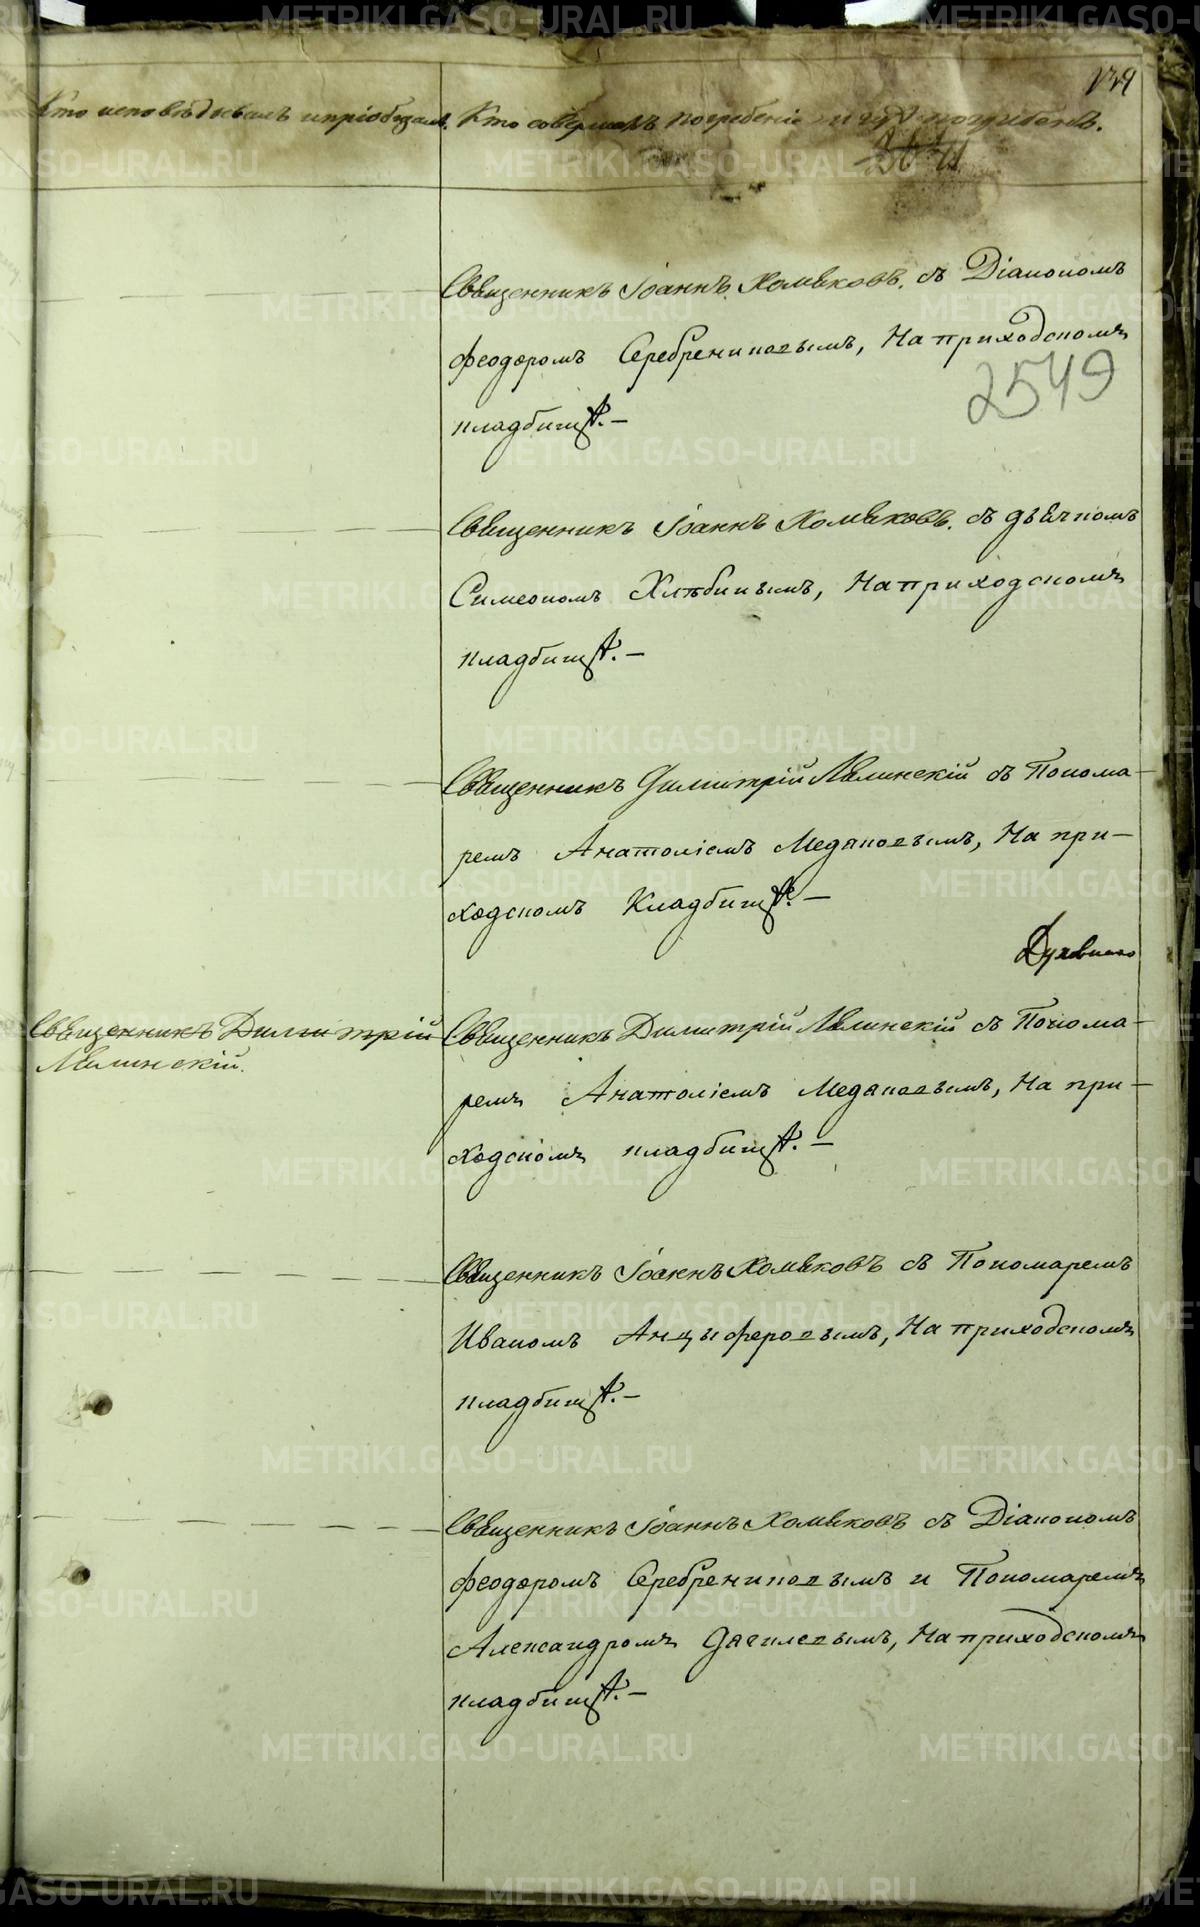 139
Кто исповѣдывалъ и пріобщалъ. Кто совершалъ погребеніе и гдѣ погребенъ.
Священникъ Іоаннъ Хомяковъ, съ Діакономъ
Феодоромъ Серебрениковымъ, На приходскомъ
2549
кладбищѣ.—
Священникъ Іоаннъ Хомяковъ, съ дьячкомъ
Симеономъ Хлѣбинымъ, На приходскомъ
кладбищѣ.—
Священникъ Димитрій Явлинскій съ Понома-
ремъ Анатоліемъ Медяковымъ, На при-
ходскомъ Кладбищѣ.—
Священникъ Димитрій
Явлинскій.
Священникъ Димитрій Явлинскій съ Понома-
ремъ Анатоліемъ Медяковымъ, На при-
ходскомъ кладбищѣ.—
Священникъ Іоаннъ Хомяковъ съ Пономаремъ
Иваномъ Анцыферовымъ, На приходскомъ
кладбищѣ.—
Священникъ Іоаннъ Хомяковъ съ Діакономъ
Феодоромъ Серебрениковымъ и Пономаремъ
Александромъ Дягилевымъ, На приходскомъ
кладбищѣ.—